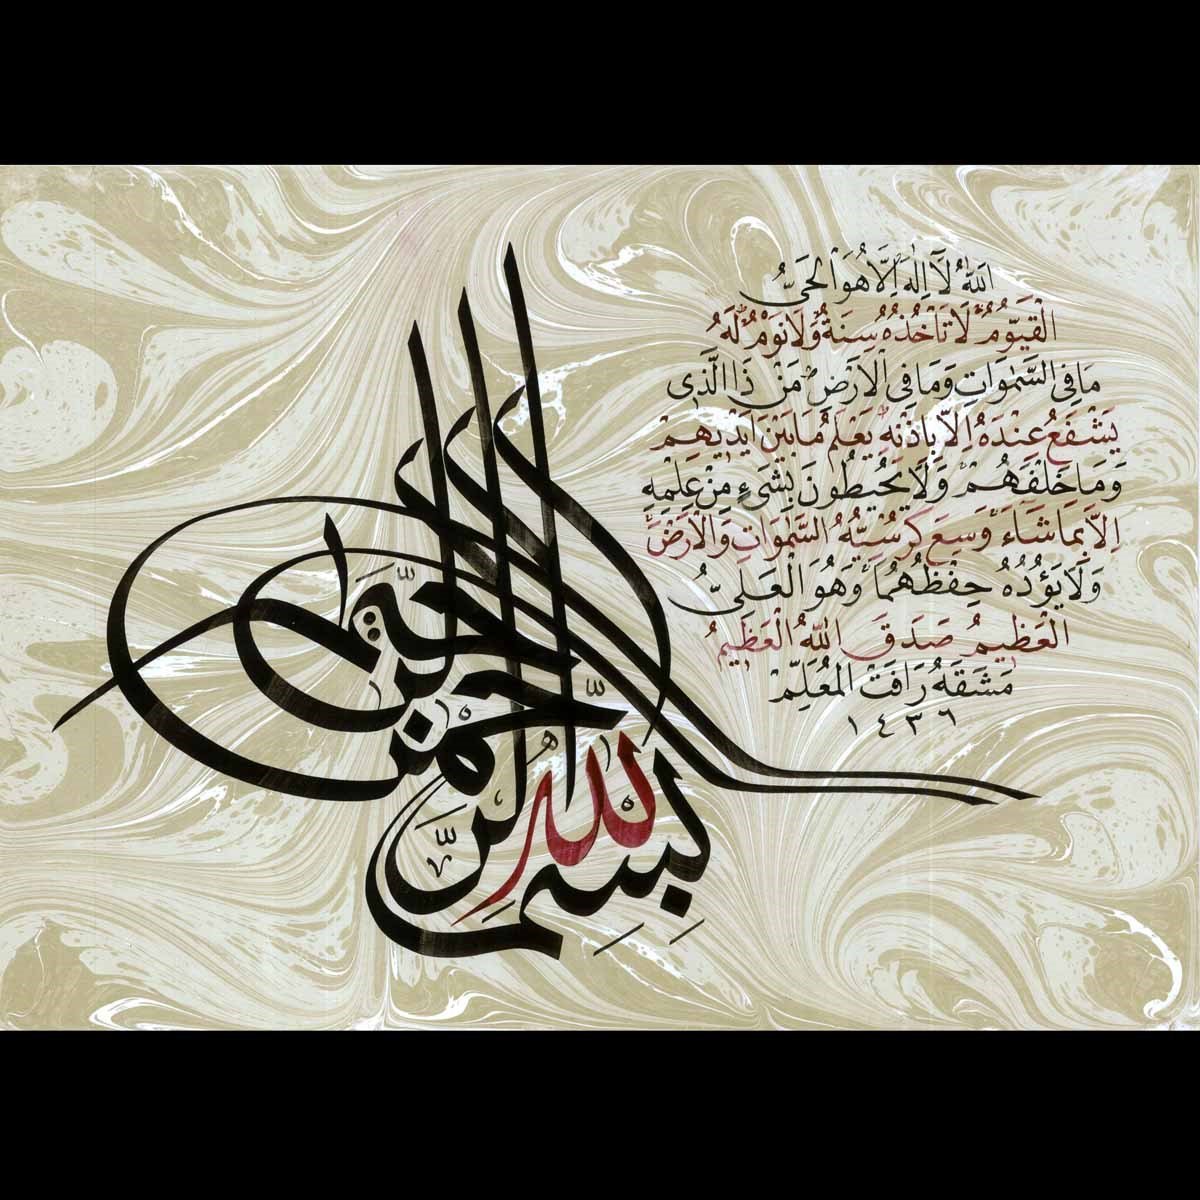 بسم الله الرحمن الرحيم
اللهُ لَا اِلٰهَ اِلَّا هُوَ الْحَيُّ
الْقَيُّومُ لَا تَأْخُذُهُ سِنَةٌ وَلَا نَوْمٌ لَهُ
مَا فِي السَّمٰوَاتِ وَمَا فِي الْاَرْضِ مَنْ ذَا الَّذٖى
يَشْفَعُ عِنْدَهُ اِلَّا بِاِذْنِهٖ يَعْلَمُ مَا بَيْنَ اَيْدٖيهِمْ
وَمَا خَلْفَهُمْ وَلَا يُحٖيطُونَ بِشَىْءٍ مِنْ عِلْمِهٖ
اِلَّا بِمَا شَاءَ وَسِعَ كُرْسِيُّهُ السَّمٰوَاتِ وَالْاَرْضَ
وَلَا يَؤُدُهُ حِفْظُهُمَا وَهُوَ الْعَلِىُّ
الْعَظٖيمُ صَدَقَ اللهُ الْعَظٖيمُ
مَشَقَهُ رَافَتْ الْمُعَلِّمْ
١٤٣٦